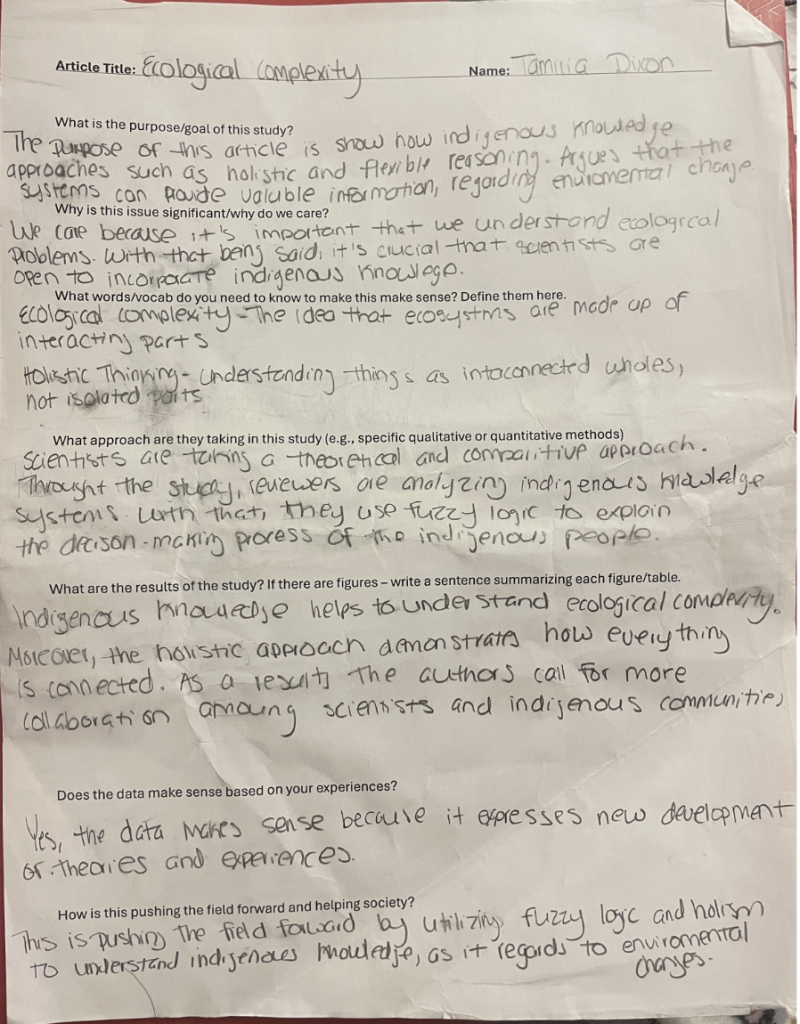 Article Title: Ecological Complexity Name: Tamilia Dixon
What is the purpose/goal of this study?
The Purpose of this article is show how indigenous knowledge
approaches such as holistic and flexible reasoning. Argues that the
systems can provide valuble information, regarding enviromental change.
Why is this issue significant/why do we care?
We care because it's important that we understand ecological
problems. With that being said, it's crucial that scientists are
open to incorporate indigenous knowlege.
What words/vocab do you need to know to make this make sense? Define them here.
Ecological complexity - The idea that ecosystms are made up of
interacting parts
Holistic Thinking - understanding things as intaconnected wholes,
not isolated parts
What approach are they taking in this study (e.g., specific qualitative or quantitative methods)
Scientists are taking a theoretical and comparitive approach.
Throught the study, reviewers are analyzing indigenous knowledge
systems. With that, they use fuzzy logic to explain
the decison-making process of the indigenous people.
What are the results of the study? If there are figures – write a sentence summarizing each figure/table.
Indigenous knowledge helps to understand ecological complexity.
Moreover, the holistic approach demonstrates how everything
is connected. As a result, the authors call for more
collaboration amoung scientists and indigenous communities,
Does the data make sense based on your experiences?
Yes, the data makes sense because it expresses new development
of theories and experiences.
How is this pushing the field forward and helping society?
This is pushing the field forward by utilizing fuzzy logic and holism
to understand indigenous knowledge, as it regards to enviromental
changes.